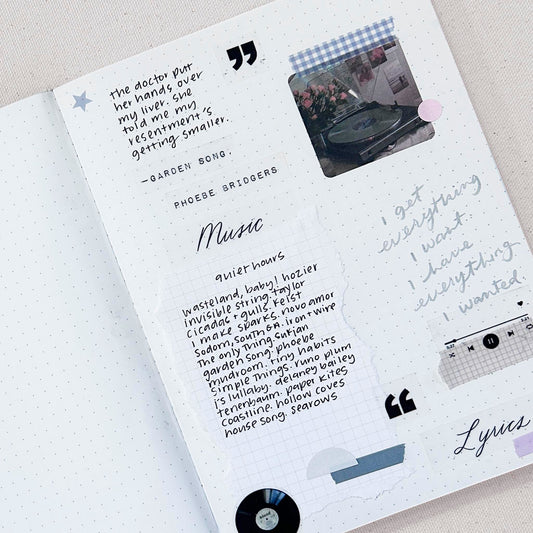 the doctor put
her hands over
my liver. she
told me my
resentment's
getting smaller.
-GARDEN SONG.
PHOEBE BRIDGERS
Music
quiet hours
wasteland, baby! hozier
invisible string. taylor
cicadas + gulls. feist
i make sparks. novo amor
Sodom, South GA. iron + wire
The only Thing. Sufjan
garden song. phoebe
mudroom. tiny habits
simple Things. runo plum
j's lullaby. delaney bailey
tenenbaum. paper kites
coastline. hollow coves
house song. searows
i get
everything
i want.
i have
everything
i wanted.
Lyrics